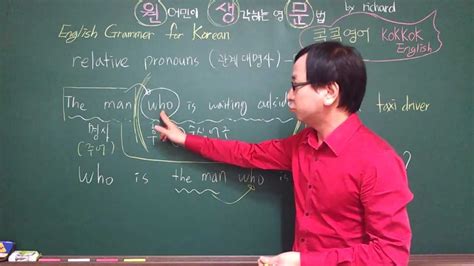 원어민이 생각하는 문법 by richard
English Grammer for Korean
콕콕영어 KOKKOK English
relative pronouns (관계대명사)
The man who is waiting outside taxi driver
명사
(주어)
who is the man who is ?